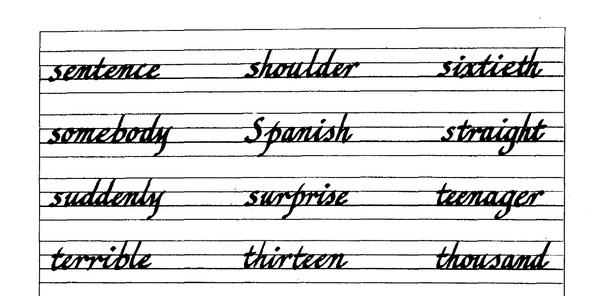 sentence shoulder sixtieth
somebody Spanish straight
suddenly surprise teenager
terrible thirteen thousand